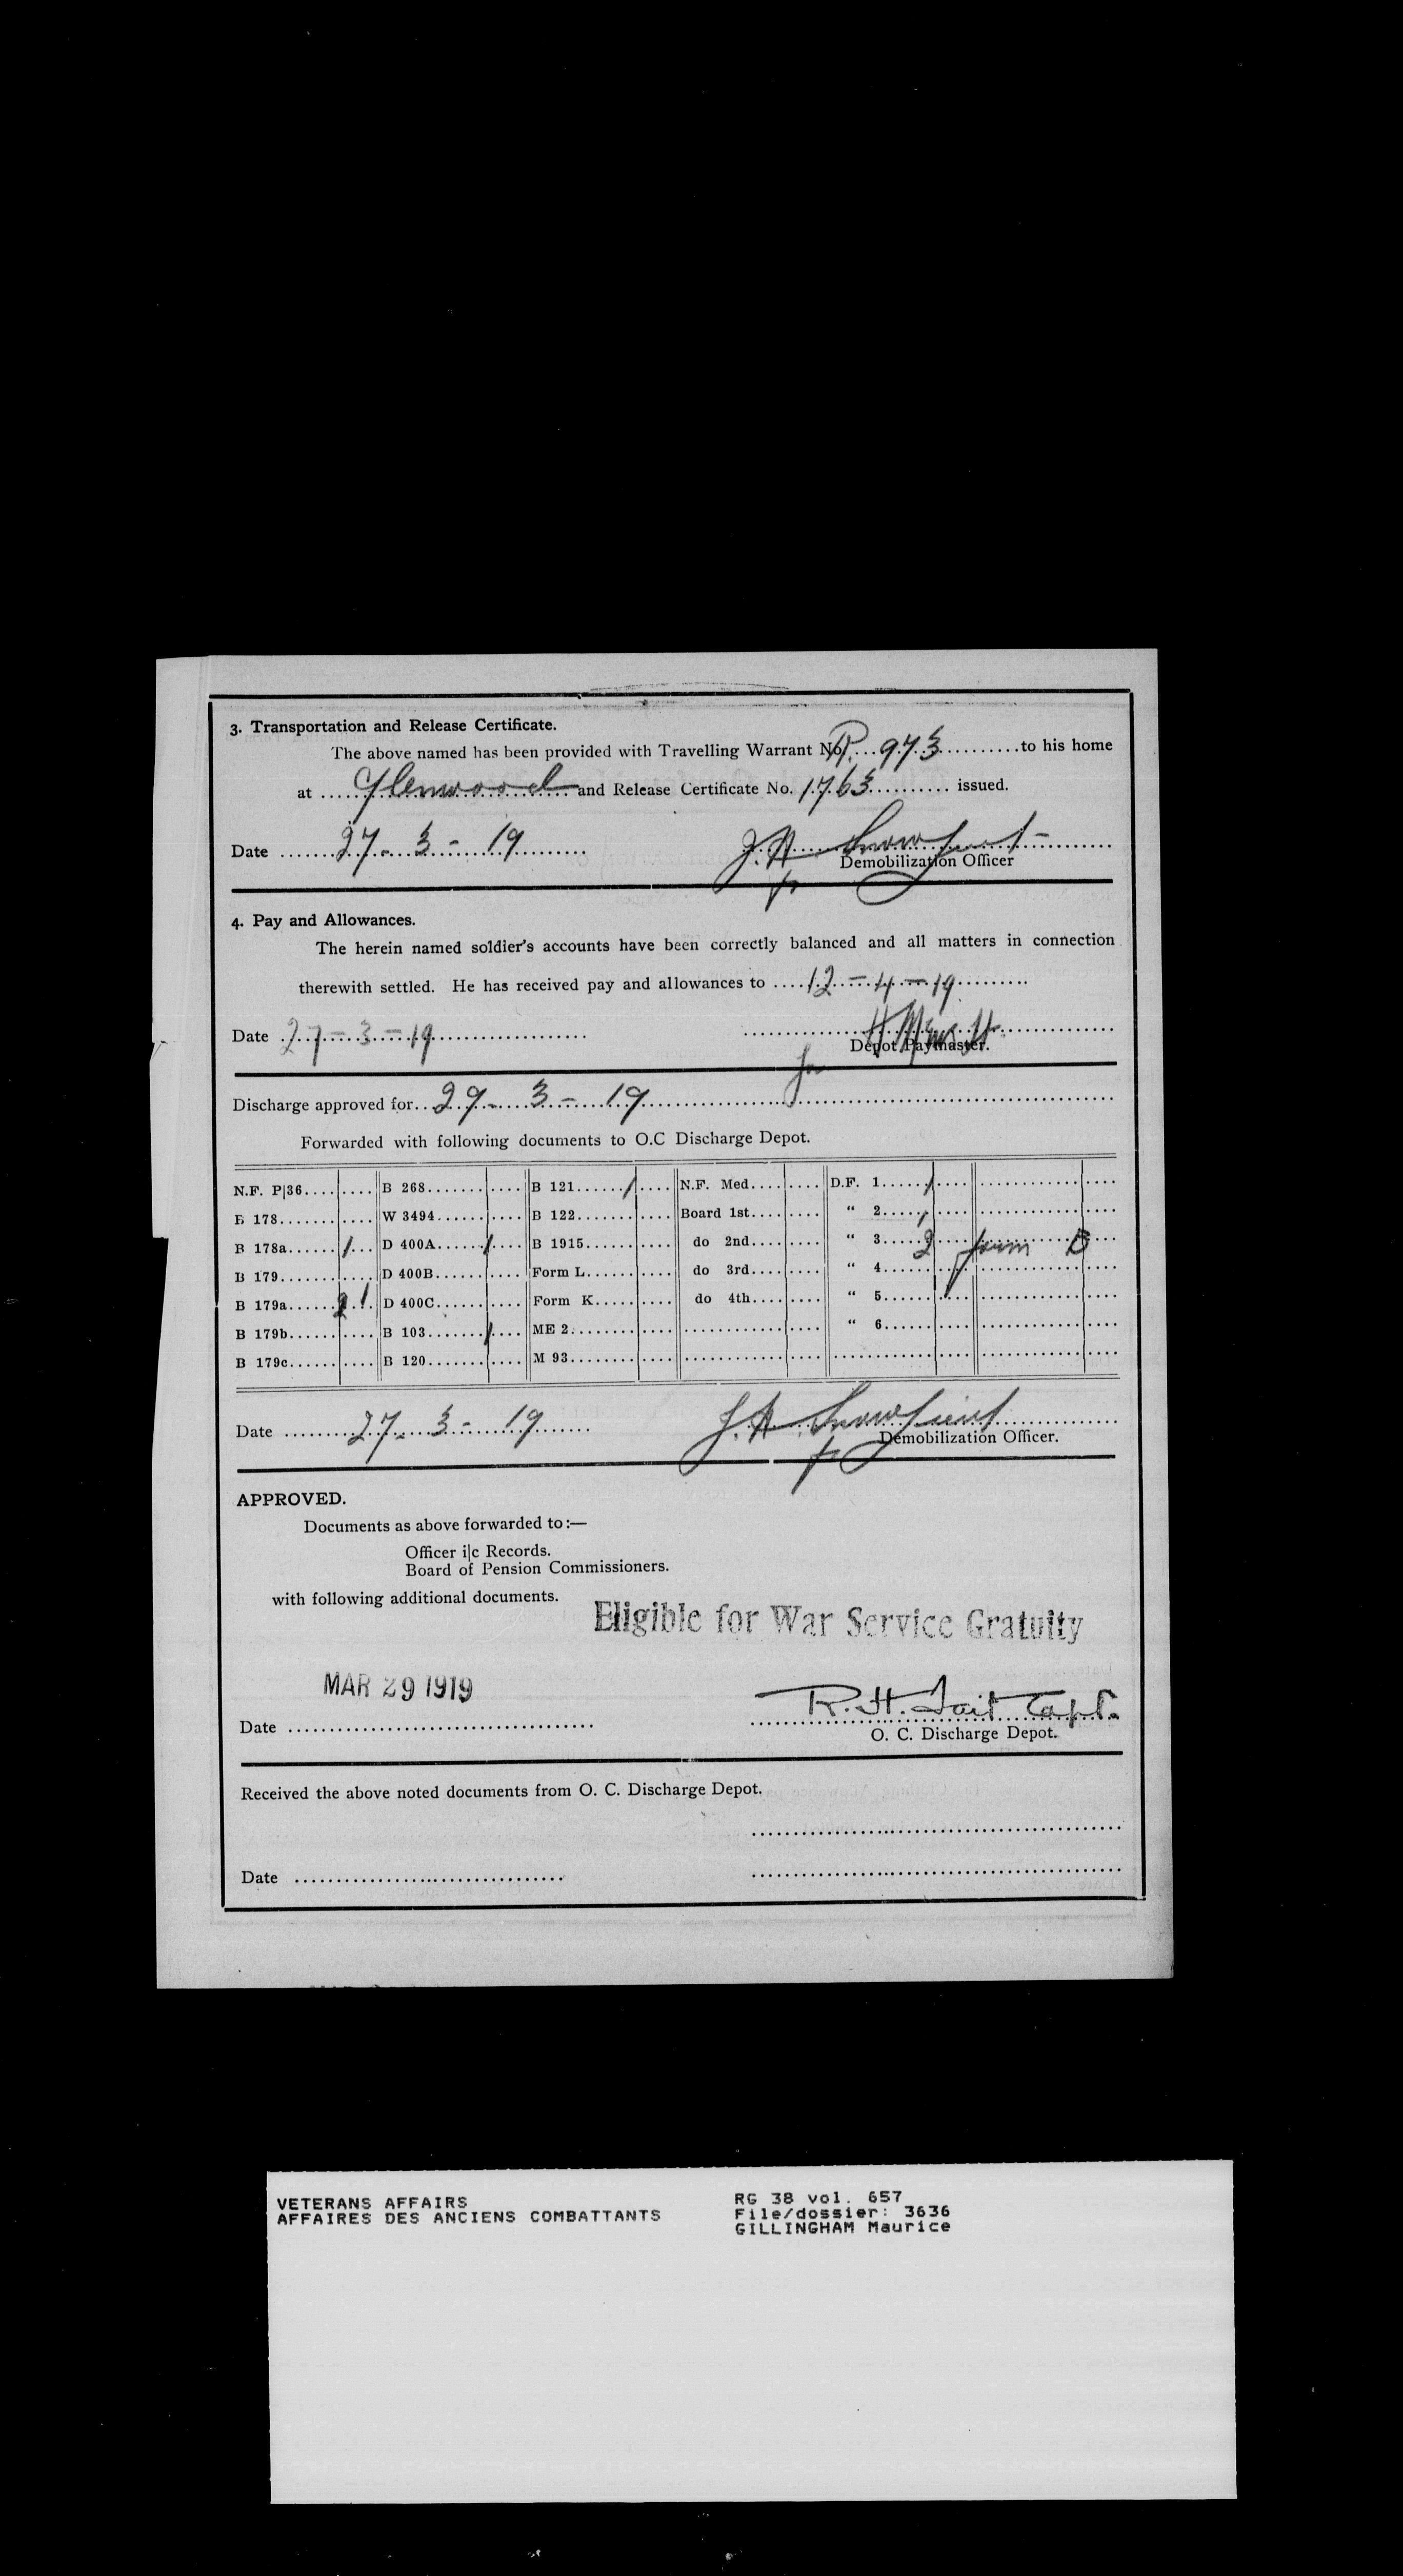 3. Transportation and Release Certificate.
The above named has been provided with Travelling Warrant No. P. 973 to his home
at Glenwood and Release Certificate No. 1763 issued.
Date 27 - 3 - 19
Demobilization Officer
4. Pay and Allowances.
The herein named soldier's accounts have been correctly balanced and all matters in connection
therewith settled. He has received pay and allowances to 12 - 4 - 19
Date 27 - 3 - 19
Depot Paymaster.
for
Discharge approved for 29 - 3 - 19
Forwarded with following documents to O.C Discharge Depot.
N.F. P|36 B 268 B 121 / N.F. Med. D.F. 1 /
B 178 W 3494 B 122 Board 1st " 2 /
B 178a / D 400A / B 1915 do 2nd " 3 2 form B
B 179 D 400B Form L do 3rd " 4
B 179a 1 D 400C Form K do 4th " 5
B 179b B 103 / ME 2 " 6
B 179c B 120 M 93
Date 27 - 3 - 19
Demobilization Officer.
APPROVED.
Documents as above forwarded to:—
Officer i|c Records.
Board of Pension Commissioners.
with following additional documents.
Eligible for War Service Gratuity
MAR 29 1919
Date R. H. Tait Capt.
O. C. Discharge Depot.
Received the above noted documents from O. C. Discharge Depot.
Date
VETERANS AFFAIRS RG 38 vol. 657
AFFAIRES DES ANCIENS COMBATTANTS File/dossier: 3636
GILLINGHAM Maurice